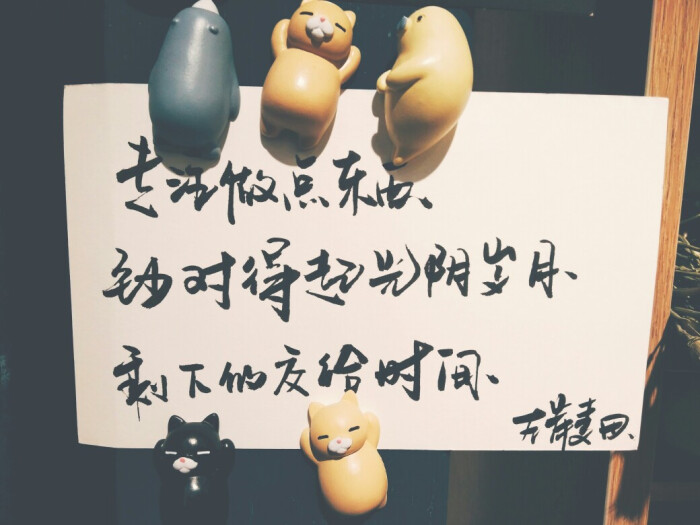 专注做点东西、
至少对得起光阴岁月、
剩下的交给时间、
左岸麦田、